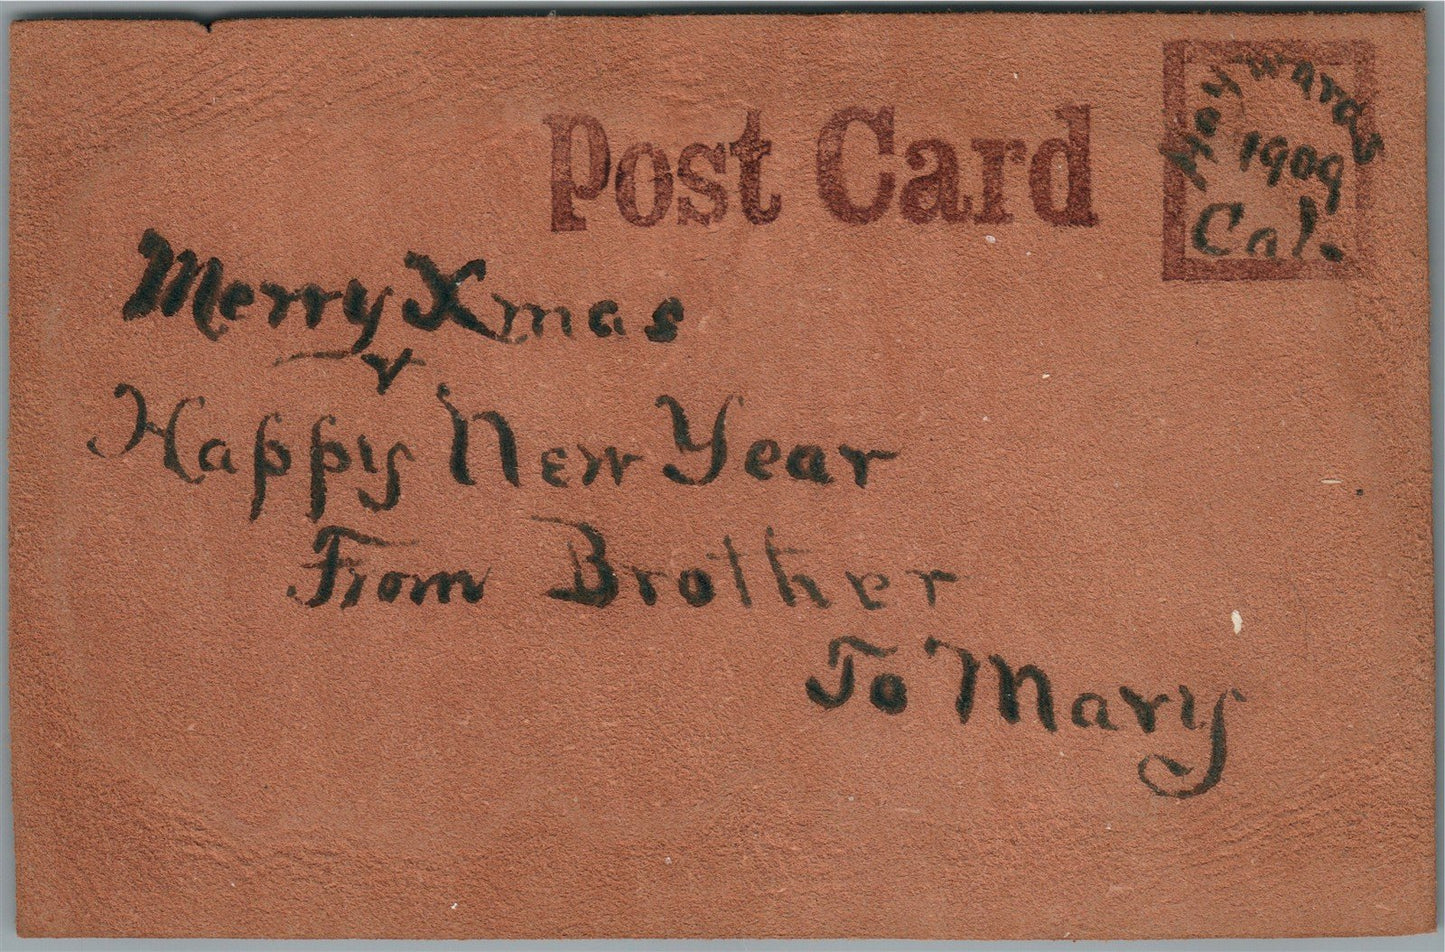 Post Card
Haywards
1909
Cal.
Merry Xmas
&
Happy New Year
From Brother
To Mary